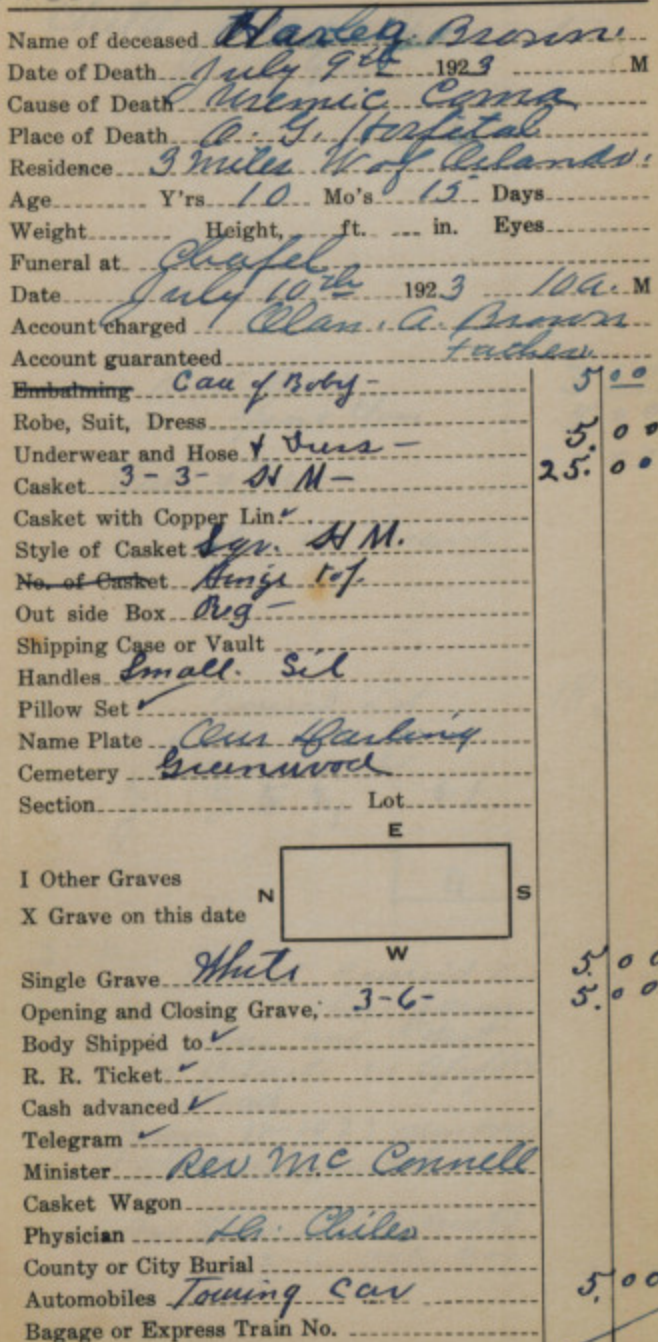 Name of deceased Harley Brown.
Date of Death July 9th 1923 M
Cause of Death Uremic Coma
Place of Death O. G. Hospital
Residence 3 miles W of Orlando.
Age Y'rs 10 Mo's 15 Days
Weight Height, ft. in. Eyes
Funeral at Chapel
Date July 10th 1923 10 a. M
Account charged A. Brown
Account guaranteed Father
Embalming Care of Body - 5 00
Robe, Suit, Dress
Underwear and Hose & Dress - 5. 00
Casket 3-3- M - 25. 00
Casket with Copper Lin. ✓
Style of Casket Sqr. M.
No. of Casket Hinge top
Out side Box Reg -
Shipping Case or Vault
Handles Small. Sil
Pillow Set ✓
Name Plate Our Darling
Cemetery Greenwood
Section Lot
E
I Other Graves
N S
X Grave on this date
W
Single Grave White 5. 00
Opening and Closing Grave, 3-6- 5. 00
Body Shipped to ✓
R. R. Ticket ✓
Cash advanced ✓
Telegram ✓
Minister Rev McConnell
Casket Wagon
Physician Dr. Chiles
County or City Burial
Automobiles Touring Car 5. 00
Bagage or Express Train No.